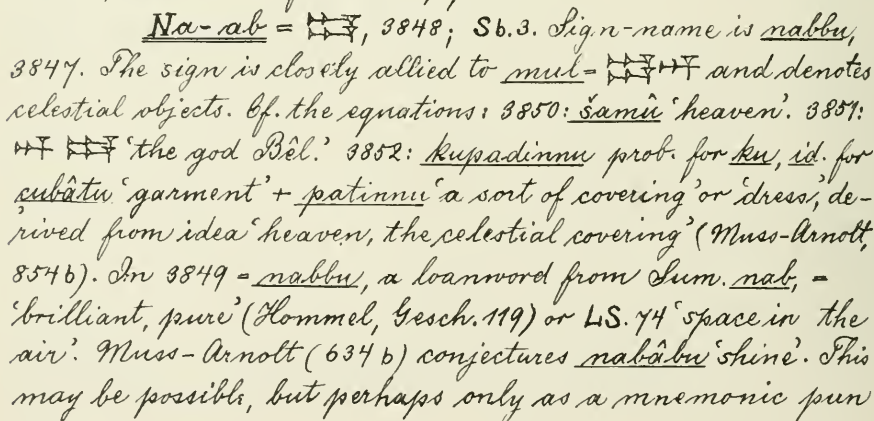 Na-ab = 𒀮, 3848; Sb.3. Sign-name is nabbu,
3847. The sign is closely allied to mul = 𒀯 and denotes
celestial objects. Cf. the equations: 3850: šamû 'heaven'. 3851:
𒀭 𒀮 'the god Bêl.' 3852: kupadinnu prob. for ku, id. for
çubâtu 'garment' + patinnu 'a sort of covering' or 'dress', de-
rived from idea 'heaven, the celestial covering' (Muss-Arnolt,
854b). In 3849 = nabbu, a loanword from Sum. nab, =
'brilliant, pure' (Hommel, Gesch. 119) or LS. 74 'space in the
air'. Muss-Arnolt (634b) conjectures nabâbu 'shine'. This
may be possible, but perhaps only as a mnemonic pun